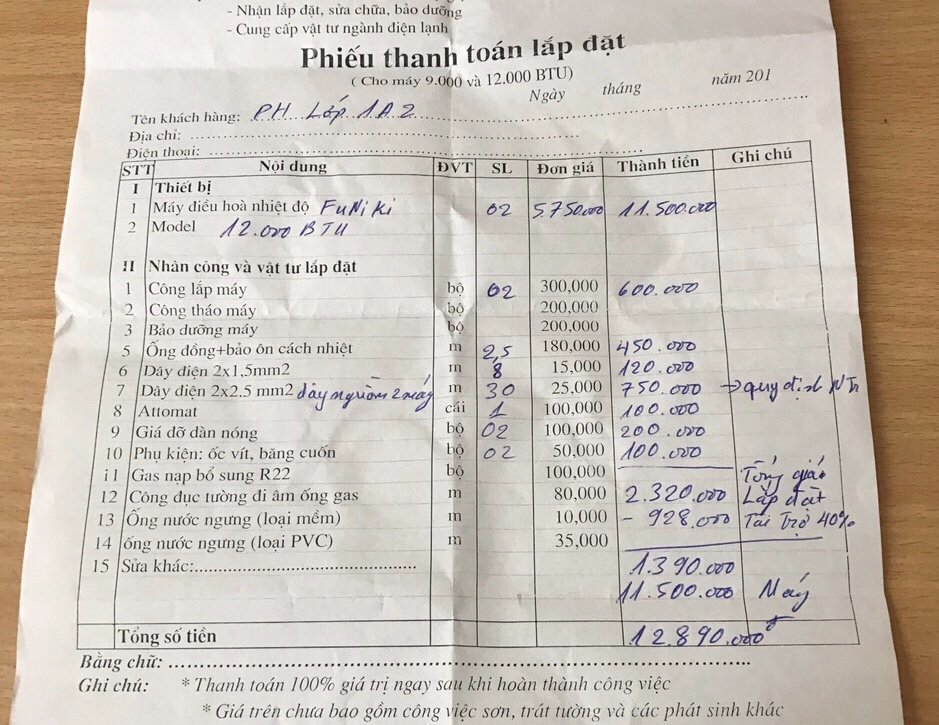 - Nhận lắp đặt, sửa chữa, bảo dưỡng
- Cung cấp vật tư ngành điện lạnh
Phiếu thanh toán lắp đặt
( Cho máy 9.000 và 12.000 BTU)
Ngày tháng năm 201
Tên khách hàng: PH Lớp 1A2
Địa chỉ:
Điện thoại:
STT Nội dung ĐVT SL Đơn giá Thành tiền Ghi chú
I Thiết bị
1 Máy điều hoà nhiệt độ FuNiKi 02 5.750.000 11.500.000
2 Model 12.000 BTU
II Nhân công và vật tư lắp đặt
1 Công lắp máy bộ 02 300,000 600.000
2 Công tháo máy bộ 200,000
3 Bảo dưỡng máy bộ 200,000
5 Ống đồng+bảo ôn cách nhiệt m 2,5 180,000 450.000
6 Dây điện 2x1,5mm2 m 8 15,000 120.000
7 Dây điện 2x2.5 mm2 dây nguồn 2 máy m 30 25,000 750.000 → quy định
8 Attomat cái 1 100,000 100.000
9 Giá đỡ dàn nóng bộ 02 100,000 200.000
10 Phụ kiện: ốc vít, băng cuốn bộ 02 50,000 100.000
11 Gas nạp bổ sung R22 bộ 100,000 Tổng giá
12 Công đục tường đi âm ống gas m 80,000 2.320.000 Lắp đặt
13 Ống nước ngưng (loại mềm) m 10,000 - 928.000 Tài trợ 40%
14 ống nước ngưng (loại PVC) m 35,000
15 Sửa khác: 1.390.000
11.500.000 Máy
Tổng số tiền 12.890.000đ
Bằng chữ:
Ghi chú: * Thanh toán 100% giá trị ngay sau khi hoàn thành công việc
* Giá trên chưa bao gồm công việc sơn, trát tường và các phát sinh khác